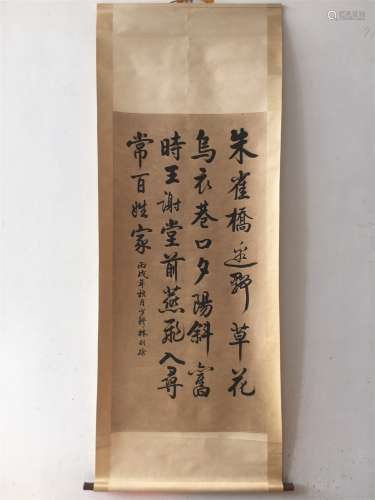 朱雀橋邊野草花
烏衣巷口夕陽斜舊
時王謝堂前燕飛入尋
常百姓家 丙戌年秋月少穆林則徐